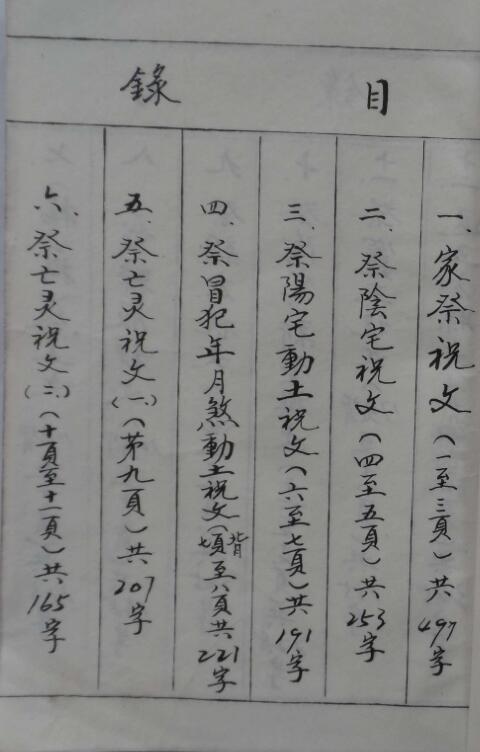 目錄
一、家祭祝文(一至三頁)共497字
二、祭陰宅祝文(四至五頁)共253字
三、祭陽宅動土祝文(六至七頁)共191字
四、祭冒犯年月煞動土祝文(七頁背至八頁共221字
五、祭亡灵祝文(一、)(第九頁)共207字
六、祭亡灵祝文(二、)(十頁至十一頁)共165字